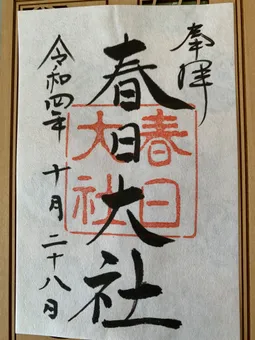 奉拝
春日大社
春日
大社
令和四年 十月二十八日